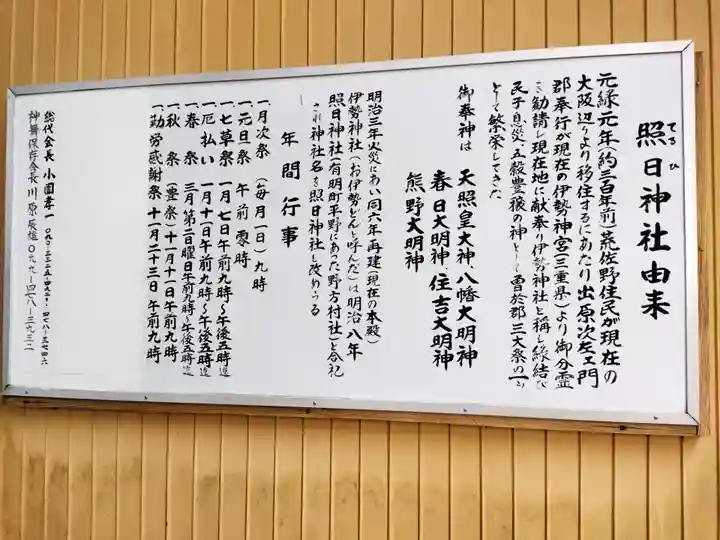 照日神社由来
てるひ
元緑元年(約三百年前)荒佐野住民が現在の
大阪辺りより移住するにあたり出原次左ェ門
郡奉行が現在の伊勢神宮(三重県)より御分霊
を勧請し現在地に献奉り伊勢神社と称し縁結び
民子息災・五穀豊穣の神として曽於郡三大祭の一つ
として繁栄してきた
御奉神は 天照皇大神・八幡大明神
春日大明神・住吉大明神
熊野大明神
明治三年火災にあい同六年再建(現在の本殿)
伊勢神社(お伊勢どんと呼んだ)は明治八年
照日神社(有明町平野にあった野方村社)と合祀
され神社名を照日神社と改めらる
年間行事
一月次祭 (毎月一日)九時
一元旦祭 午前零時
一七草祭 一月七日午前九時〜午後五時迄
一厄払い 一月十日午前九時〜午後五時迄
一春祭 三月第二日曜日午前九時〜午後五時迄
一秋祭(豊祭)十一月十一日午前九時
一勤労感謝祭 十一月二十三日午前九時
総代会長 小園孝一
神舞保存会長 川原辰雄 〇九九-四七八-三九三二